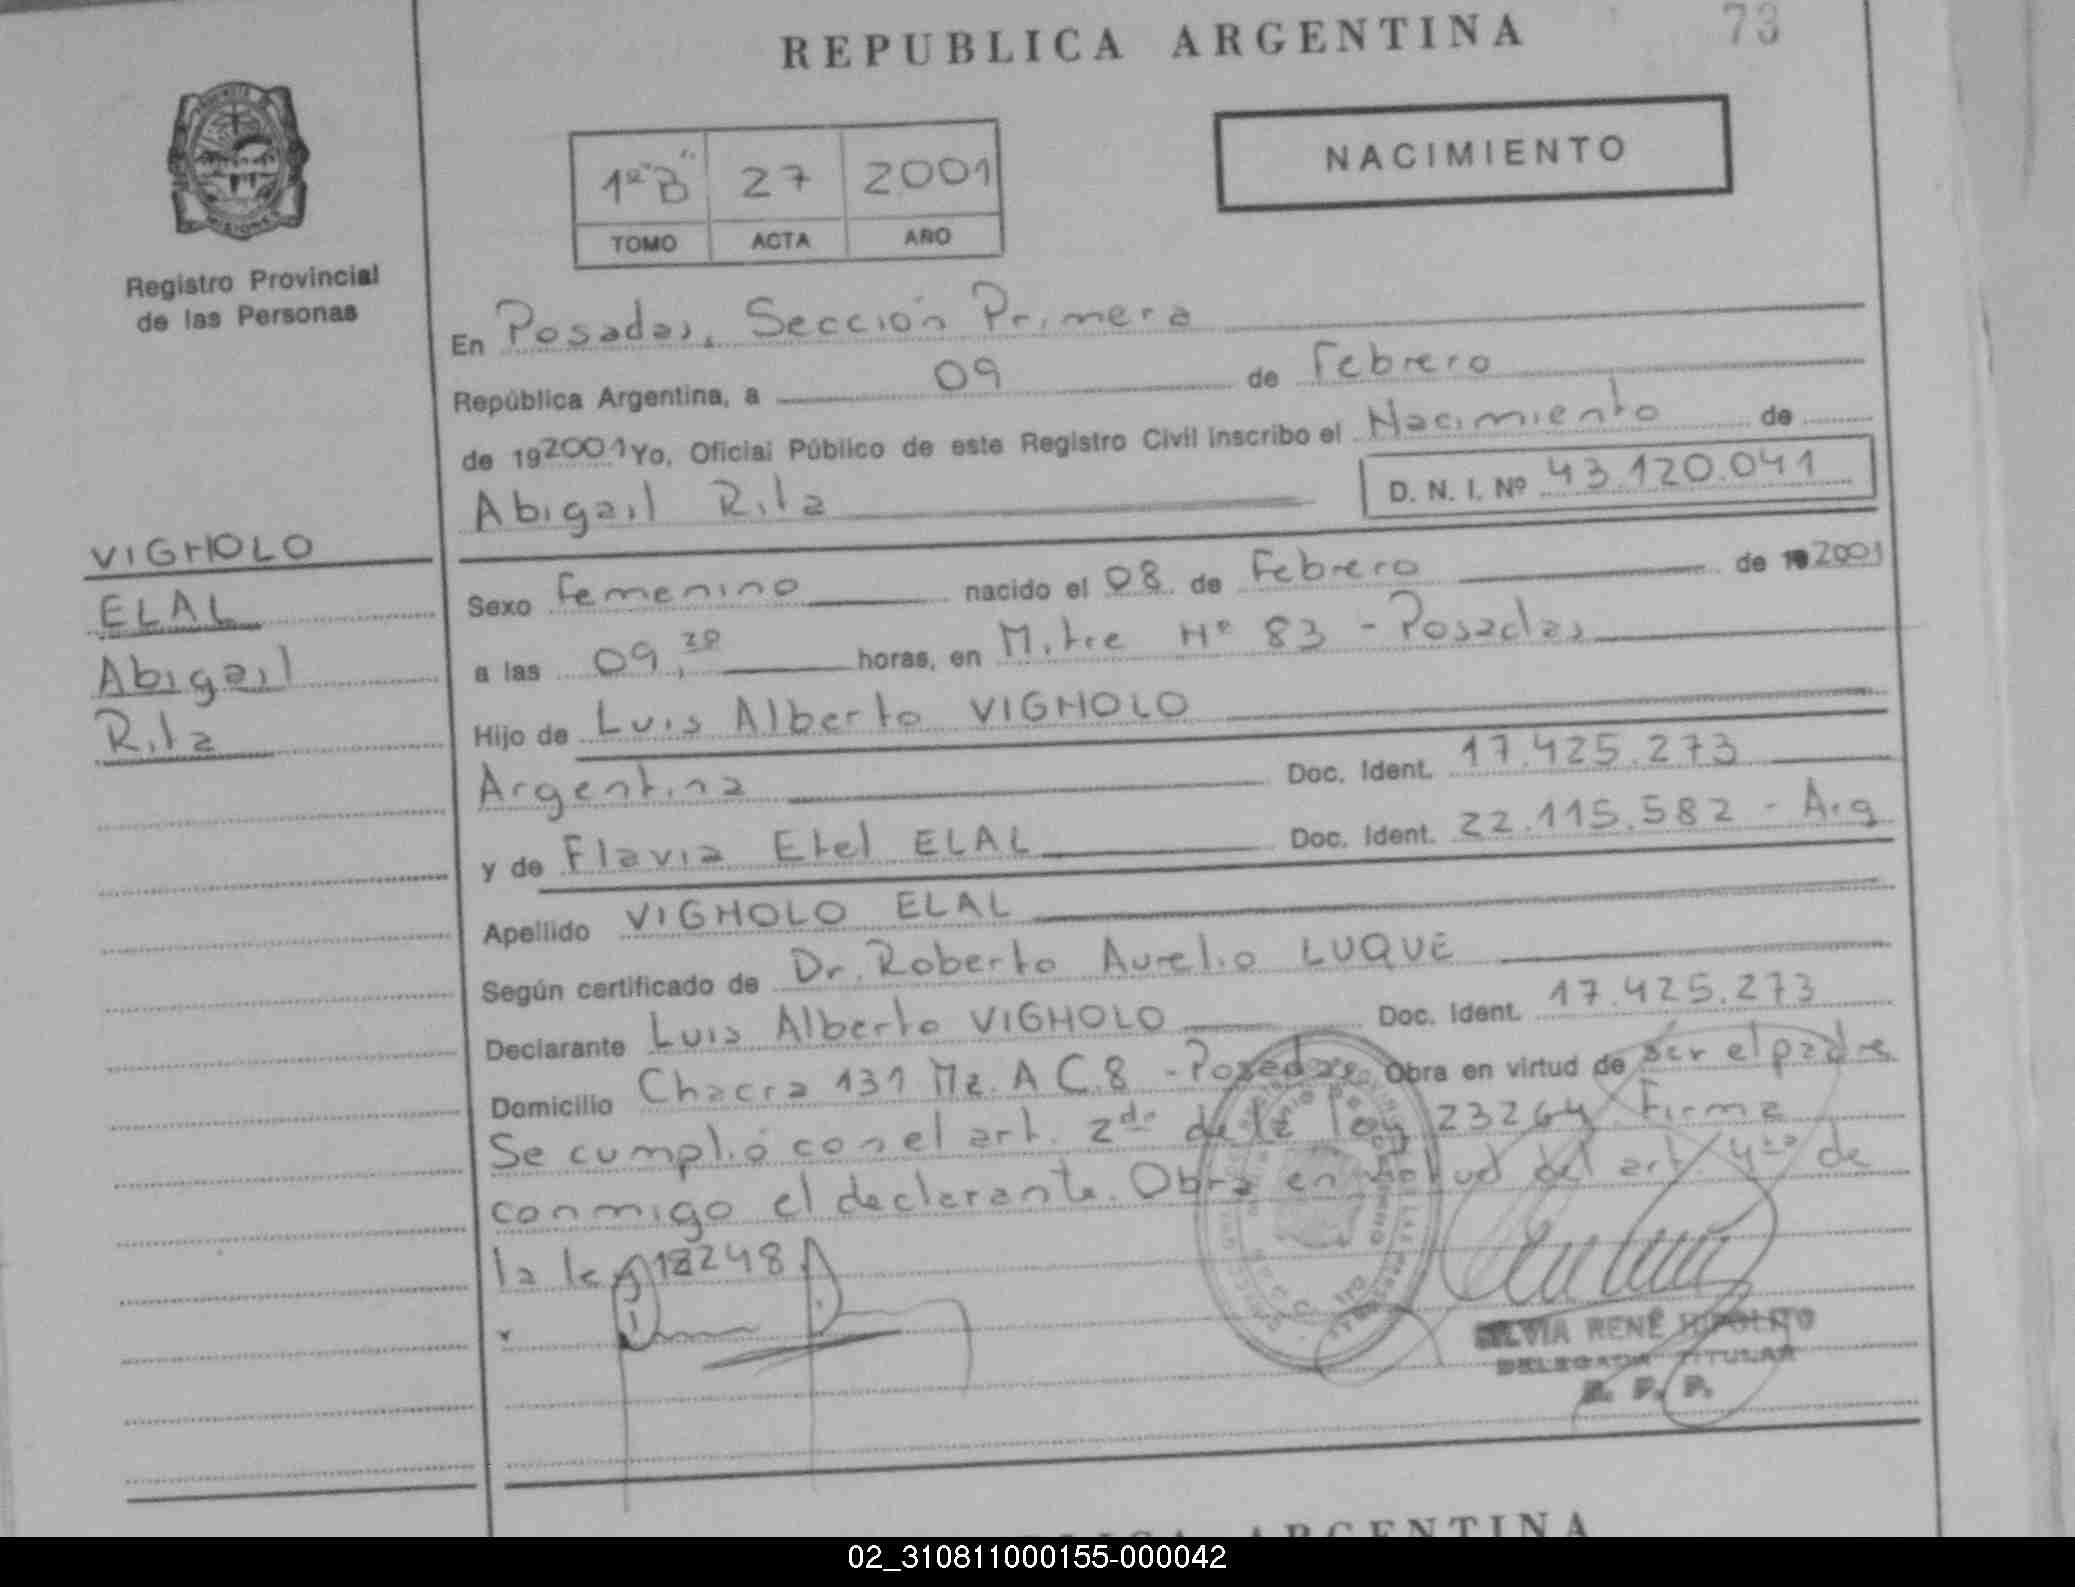 REPUBLICA ARGENTINA
73
Registro Provincial
de las Personas
1º "B" 27 2001
TOMO ACTA AÑO
NACIMIENTO
En Posadas, Sección Primera
República Argentina, a 09 de Febrero
de 192001 Yo, Oficial Público de este Registro Civil inscribo el Nacimiento de
Abigail Rita D. N. I. Nº 43.120.041
VIGNOLO
ELAL
Abigail
Rita
Sexo Femenino nacido el 08 de Febrero de 2001
a las 09, horas, en Mitre Nº 83 - Posadas
Hijo de Luis Alberto VIGNOLO
Argentina Doc. Ident. 17.425.273
y de Flavia Etel ELAL Doc. Ident. 22.115.582 - Arg
Apellido VIGNOLO ELAL
Según certificado de Dr. Roberto Aurelio LUQUE
Declarante Luis Alberto VIGNOLO Doc. Ident. 17.425.273
Domicilio Chacra 131 Mz. A C.8 - Posadas Obra en virtud de ser el padre
Se cumplió con el art. 2do de la ley 23264. Firma
conmigo el declarante. Obra en virtud del art. 4to de
la ley 18248
SILVIA RENÉ HIPOLITO
DELEGADA TITULAR
R. P. P.
ARGENTINA
02_310811000155-000042